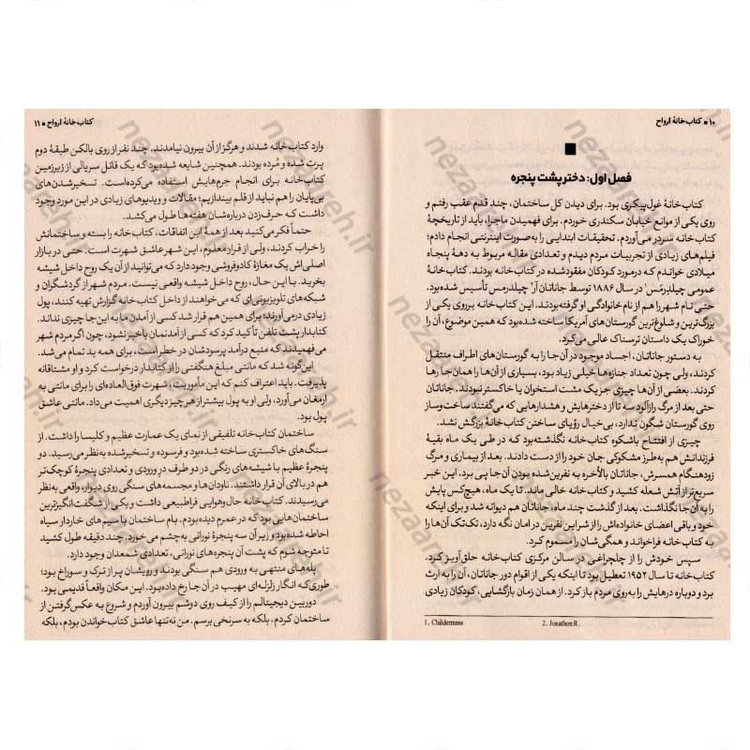 ۱۰ ▪ کتاب‌خانهٔ ارواح
فصل اول: دختر پشت پنجره
کتاب‌خانهٔ غول‌پیکری بود. برای دیدن کل ساختمان، چند قدم عقب رفتم و
روی یکی از موانع خیابان سکندری خوردم. برای فهمیدن ماجرا، باید از تاریخچهٔ
کتاب‌خانه سردر می‌آوردم. تحقیقات ابتدایی را به‌صورت اینترنتی انجام دادم؛
فیلم‌های زیادی از تجربیات مردم دیدم و تعدادی مقاله مربوط به دههٔ پنجاه
میلادی خواندم که درمورد کودکان مفقودشده در کتاب‌خانه بودند. کتاب‌خانهٔ
عمومی چیلدرمَس¹ در سال ۱۸۸۶ توسط جاناتان آر² چیلدرمس تأسیس شده‌بود.
حتی نام شهر را هم از نام خانوادگی او گرفته‌بودند. این کتاب‌خانه بر روی یکی از
بزرگ‌ترین و شلوغ‌ترین گورستان‌های آمریکا ساخته شده‌بود که همین موضوع، آن را
خوراک یک داستان ترسناک عالی می‌کرد.
به دستور جاناتان، اجساد موجود در آن‌جا را به گورستان‌های اطراف منتقل
کردند، ولی چون تعداد جنازه‌ها خیلی زیاد بود، بسیاری از آن‌ها را همان‌جا رها
کردند. بعضی از آن‌ها چیزی جز یک مشت استخوان یا خاکستر نبودند. جاناتان
حتی بعد از مرگ رازآلود سه تا از دخترهایش و هشدارهایی که می‌گفتند ساخت‌وساز
روی گورستان شگون ندارد، بی‌خیال رؤیای ساختن کتاب‌خانهٔ بزرگش نشد.
چیزی از افتتاح باشکوه کتاب‌خانه نگذشته‌بود که در طی یک ماه بقیهٔ
فرزندانش هم به‌طرز مشکوکی جان خود را از دست دادند. بعد از بیماری و مرگ
زودهنگام همسرش، جاناتان بالأخره به نفرین‌شده بودن آن‌جا پی برد. این خبر
سریع‌تر از آتش شعله کشید و کتاب‌خانه خالی ماند. تا یک ماه، هیچ‌کس پایش
را به آن‌جا نگذاشت. بعد از گذشت چند ماه، جاناتان هم دیوانه شد و برای اینکه
خود و باقی اعضای خانواده‌اش را از شر این نفرین در امان نگه دارد، تک‌تک آن‌ها را
به کتاب‌خانه فراخواند و همگی‌شان را مسموم کرد.
سپس خودش را از چلچراغی در سالن مرکزی کتاب‌خانه حلق‌آویز کرد.
کتاب‌خانه تا سال ۱۹۵۲ تعطیل بود تا اینکه یکی از اقوام دور جاناتان، آن را به ارث
برد و دوباره درهایش را به‌روی مردم باز کرد. از همان زمان بازگشایی، کودکان زیادی
1. Childermass 2. Jonathen R.
کتاب‌خانهٔ ارواح ▪ ۱۱
وارد کتاب‌خانه شدند و هرگز از آن بیرون نیامدند. چند نفر از روی بالکن طبقهٔ دوم
پرت شده و مُرده بودند. همچنین شایعه شده‌بود که یک قاتل سریالی از زیرزمین
کتاب‌خانه برای انجام جرم‌هایش استفاده می‌کرده‌است. تسخیرشدن‌های
بی‌پایان را هم نباید از قلم بیندازیم؛ مقالات و ویدیوهای زیادی در این مورد وجود
داشت که حرف‌زدن درباره‌شان هفته‌ها طول می‌کشد.
حتماً فکر می‌کنید بعد از همهٔ این اتفاقات، کتاب‌خانه را بسته و ساختمانش
را خراب کردند، ولی از قرار معلوم، این شهر عاشق شهرت است. حتی در بازار
اصلی‌اش یک مغازهٔ کادوفروشی وجود دارد که می‌توانید از آن یک روح داخل شیشه
بخرید. با این حال، روح داخل شیشه واقعی نیست. مردم شهر از گردشگران و
شبکه‌های تلویزیونی‌ای که می‌خواهند از داخل کتاب‌خانه گزارش تهیه کنند، پول
زیادی درمی‌آورند؛ برای همین هم قرار شد کسی از آمدن ما به این‌جا چیزی نداند.
کتابدار پشت تلفن تأکید کرد که کسی از آمدنمان باخبر نشود، چون اگر مردم شهر
می‌فهمیدند که منبع درآمد پرسودشان در خطر است، برای همه بد تمام می‌شد.
این‌گونه شد که مانتی مبلغ هنگفتی را از کتابدار درخواست کرد و او مشتاقانه
پذیرفت. باید اعتراف کنم که این مأموریت، شهرت فوق‌العاده‌ای را برای مانتی به
ارمغان می‌آورد، ولی او به پول بیشتر از هر چیز دیگری اهمیت می‌داد. مانتی عاشق
پول بود.
ساختمان کتاب‌خانه تلفیقی از نمای یک عمارت عظیم و کلیسا را داشت. از
سنگ‌های خاکستری ساخته شده‌بود و فرسوده و تسخیرشده به‌نظر می‌رسید. دو
پنجرهٔ عظیم با شیشه‌های رنگی در دو طرف درِ ورودی و تعدادی پنجرهٔ کوچک‌تر
هم در بالای آن قرار داشتند. ناودان‌ها و مجسمه‌های سنگی روی دیوار، واقعی به‌نظر
می‌رسیدند. کتاب‌خانه حال‌وهوایی فراطبیعی داشت و یکی از شگفت‌انگیزترین
ساختمان‌هایی بود که در عمرم دیده بودم. بام ساختمان با سیم‌های خاردار سیاه
احاطه شده‌بود و زیر آن سه پنجرهٔ نورانی به‌چشم می‌خورد. چند دقیقه طول کشید
تا متوجه شوم که پشت آن پنجره‌های نورانی، تعدادی شمعدان وجود دارد.
پله‌های منتهی به ورودی هم سنگی بودند و رویشان پر از تَرک و سوراخ بود؛
طوری‌که انگار زلزله‌ای مهیب در آن‌جا رخ داده‌بود. این مکان واقعاً قدیمی بود.
دوربین دیجیتالم را از کیف روی دوشم بیرون آوردم و شروع به عکس‌گرفتن از
ساختمان کردم، بلکه به سرنخی برسم. من نه‌تنها عاشق کتاب‌خواندن بودم، بلکه
nezaareh.ir